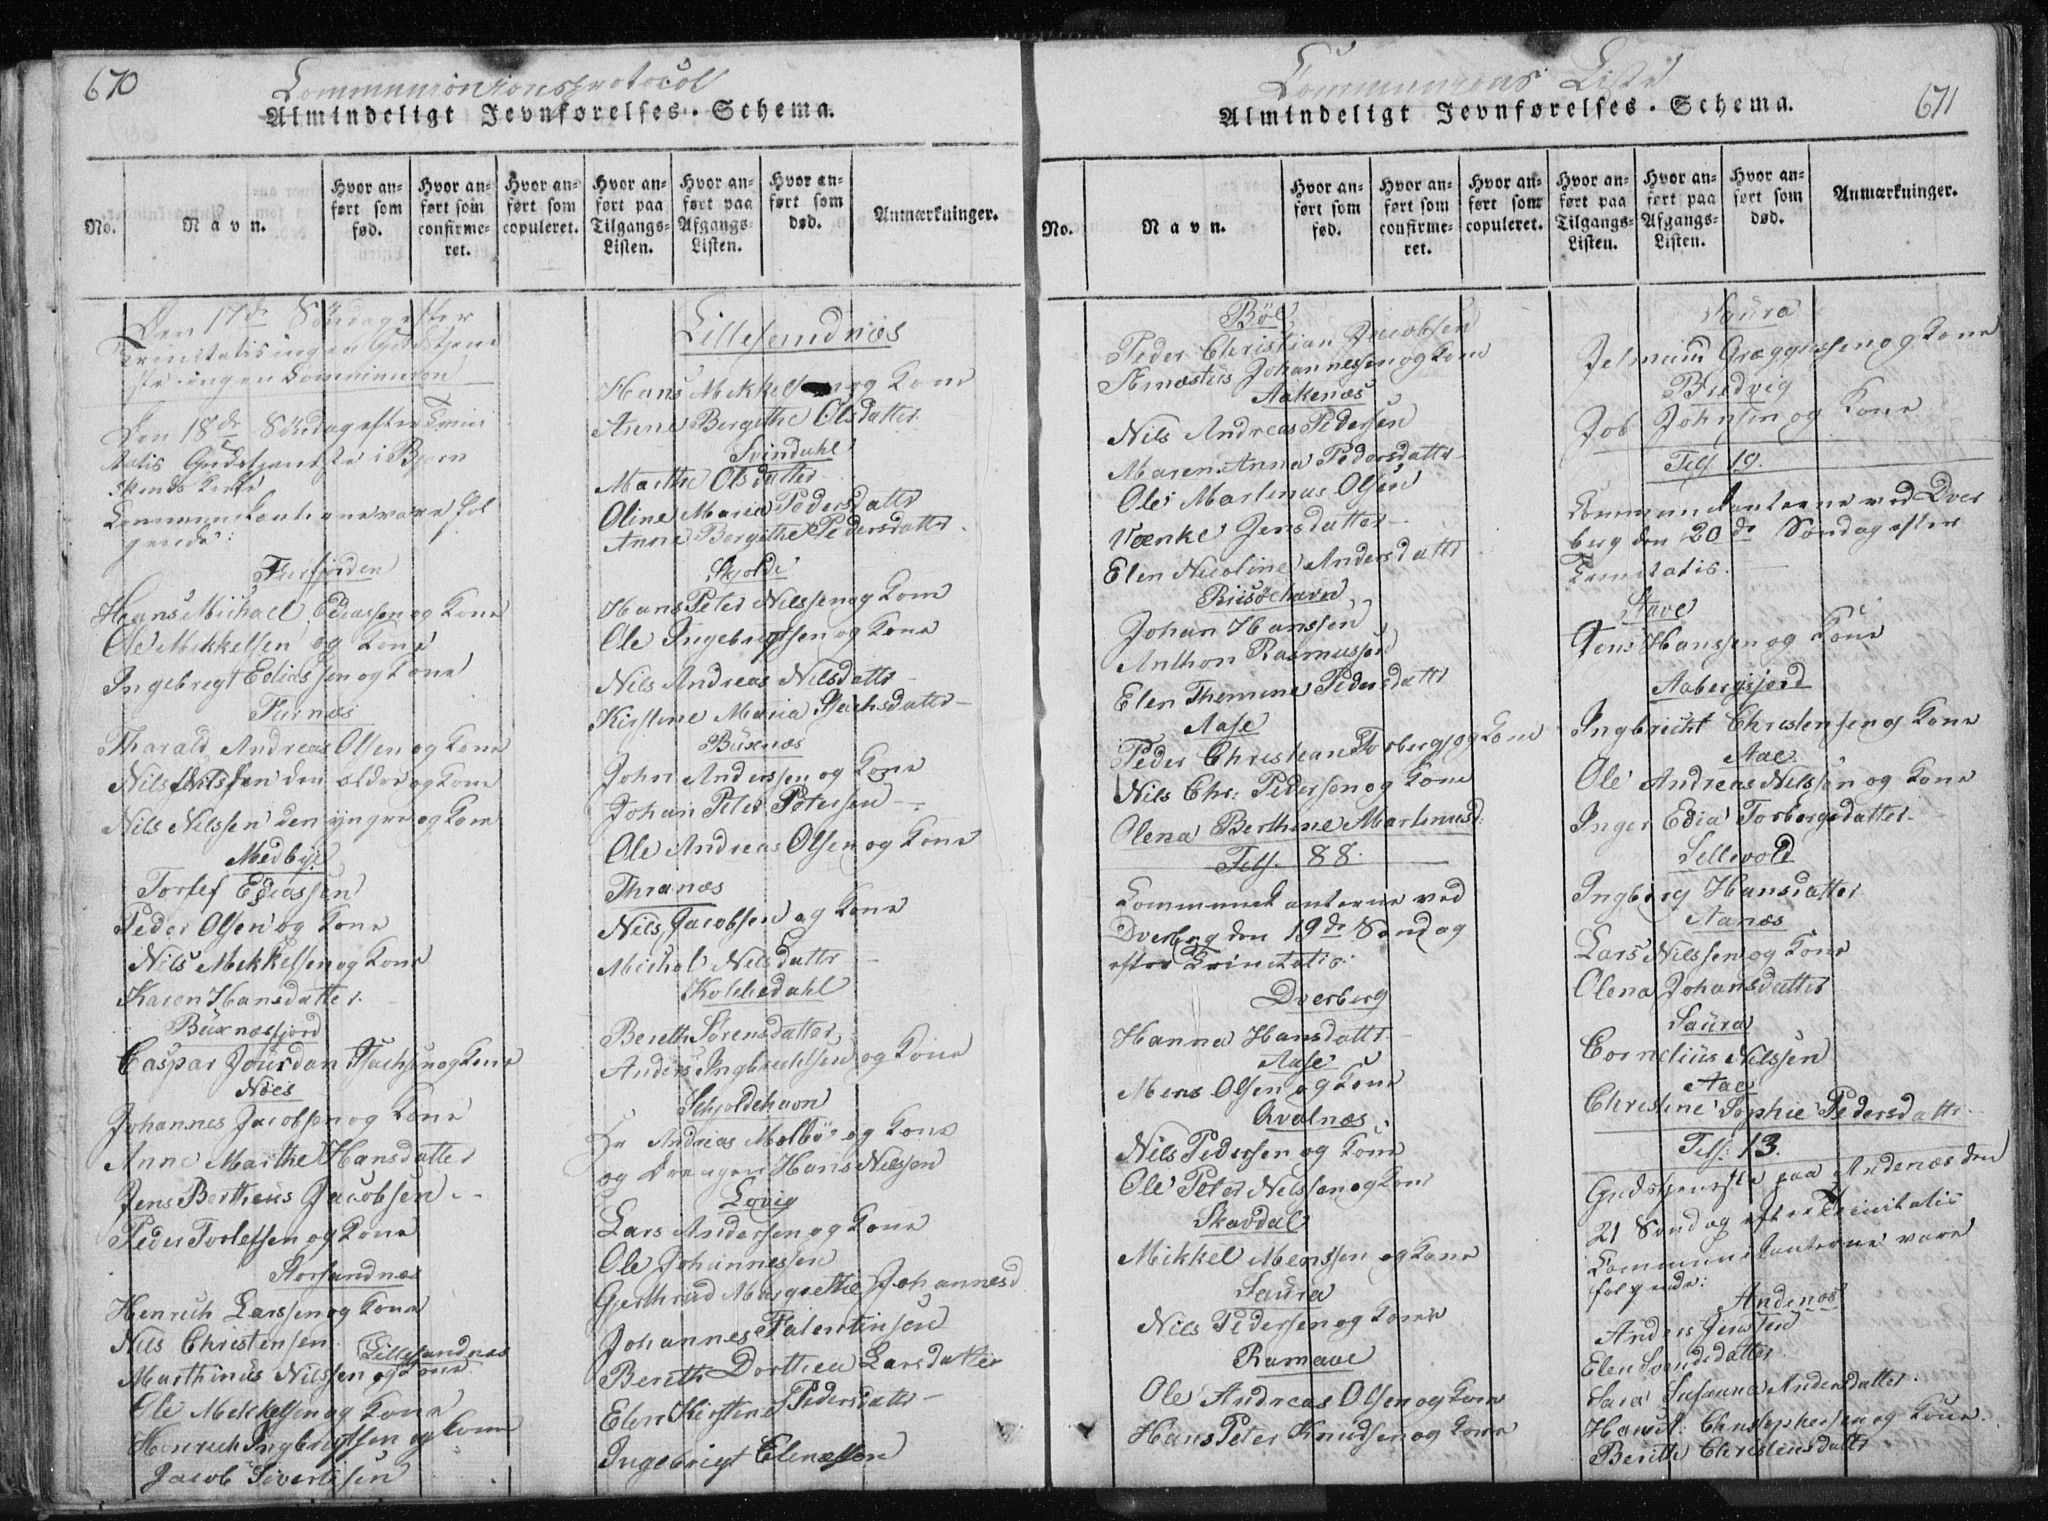 670
Communionsprotocol
Almindeligt Jevnførelses-Schema.
No.
Navn.
Hvor anført som fød.
Hvor anført som confirmeret.
Hvor anført som copuleret.
Hvor anført paa Tilgangs-Listen.
Hvor anført paa Afgangs-Listen.
Hvor anført som død.
Anmærkninger.
Den 17de Søndag efter
Trinitatis ingen Gudstjene
ste ingen Communion
Den 18de Søndag efter Trini
tatis Gudstjeneste i Bjørn
skinds Kirke
Communikanterne vare føl
gende:
Forfjorden
Hans Michael Ediassen og Kone
Ole Mikkelsen og Kone
Ingebregt Ediassen og Kone
Furnæs
Tharald Andreas Olsen og Kone
Nils Nilssen den ældre og Kone
Nils Nilssen den yngre og Kone
Medbye
Torlef Ediassen
Peder Olsen og Kone
Nils Mekkelsen og Kone
Karen Hansdatter
Buxnæsfjord
Caspar Jourdan Isachsen og Kone
Nøes
Johannes Jacobsen og Kone
Anne Marthe Hansdatter
Jens Bertheus Jacobsen
Peder Torlefsen og Kone
Storsandnæs
Henrich Larssen og Kone
Nils Christensen
Lillesandnæs
Marthinus Nilssen og Kone
Ole Mekkelsen og Kone
Henrich Ingbrigtsen og Kone
Jacob Sivertsen
Lillesandnæs
Hans Mekkelsen og Kone
Anne Bergithe Olsdatter
Svindahl
Marthe Olsdatter
Oline Maria Pedersdattr
Anne Bergithe Pedersdattr
Skjolde
Hans Peter Nilssen og Kone
Ole Ingebregtsen og Kone
Nils Andreas Nilsdattr
Kirstine Maria Isachsdattr
Buxnæs
John Anderssen og Kone
Johan Peter Petersen
Ole Andreas Olsen og Kone
Thranæs
Nils Jacobsen og Kone
Michol Nilsdattr
Kobbedahl
Bereth Sørensdatter
Anders Ingbrechtsen og Kone
Schjoldehavn
Hr Andreas Molboe og Kone
og Drengen Hans Nilssen
Lovig
Lars Andersen og Kone
Ole Johannessen
Gerthrud Margrethe Johannesd
Johannes Falentinsen
Bereth Dorthea Larsdatter
Elen Kirstine Pedersdattr
Ingebrigt Elenæssen
671
Communions Liste
Almindeligt Jevnførelses-Schema.
No.
Navn.
Hvor anført som fød.
Hvor anført som confirmeret.
Hvor anført som copuleret.
Hvor anført paa Tilgangs-Listen.
Hvor anført paa Afgangs-Listen.
Hvor anført som død.
Anmærkninger.
Bøe
Peder Christian Jacobsen
Johannessen og Kone
Aakenæs
Nils Andreas Pedersen
Maren Anna Pedersdattr
Ole Martinus Olsen
Vænke Jensdatter
Elen Nicoline Andersdattr
Riisøehavn
Johan Hanssen
Anthon Rasmussen
Elen Themine Pedersdattr
Aase
Peder Christian Torbergs og Kone
Nils Chr: Pedersen og Kone
Olena Berthine Martinusd:
Tils. 88.
Communicanterne ved
Dverberg den 19de Søndag
efter Trinitatis:
Dverberg
Hanna Hansdattr
Aase
Mens Olsen og Kone
Qvalnæs
Nils Pedersen og Kone
Ole Peter Nilssen og Kone
Skavdal
Mikkel Menssen og Kone
Saura
Nils Pedersen og Kone
Ramaae
Ole Andreas Olsen og Kone
Hans Peter Knudsen og Kone
Saura
Jelmand Greggussen og Kone
Bredvig
Job Johnsen og Kone
Tils 19.
Communicanterne ved Dver
berg den 20de Søndag efter
Trinitatis.
Stave
Jens Hanssen og Kone
Aabergsjord
Ingbricht Christensen og Kone
Aae
Ole Andreas Nilssen og Kone
Inger Edia Torbergsdatter
Sellevold
Ingberg Hansdatter
Aanæs
Lars Nilssen og Kone
Olena Johansdatter
Saura
Cornelius Nilssen
Aae
Christine Sophie Pedersdattr
Tils: 13.
Gudstjeneste paa Andenæs den
21 Søndag efter Trinitatis
Communikanterne vare
følgende:
Andenæs
Anders Jenssen
Elen Svendsdatter
Sara Susanna Andersdatter
Hans A: Christophersen og Kone
Bereth Christensdattr